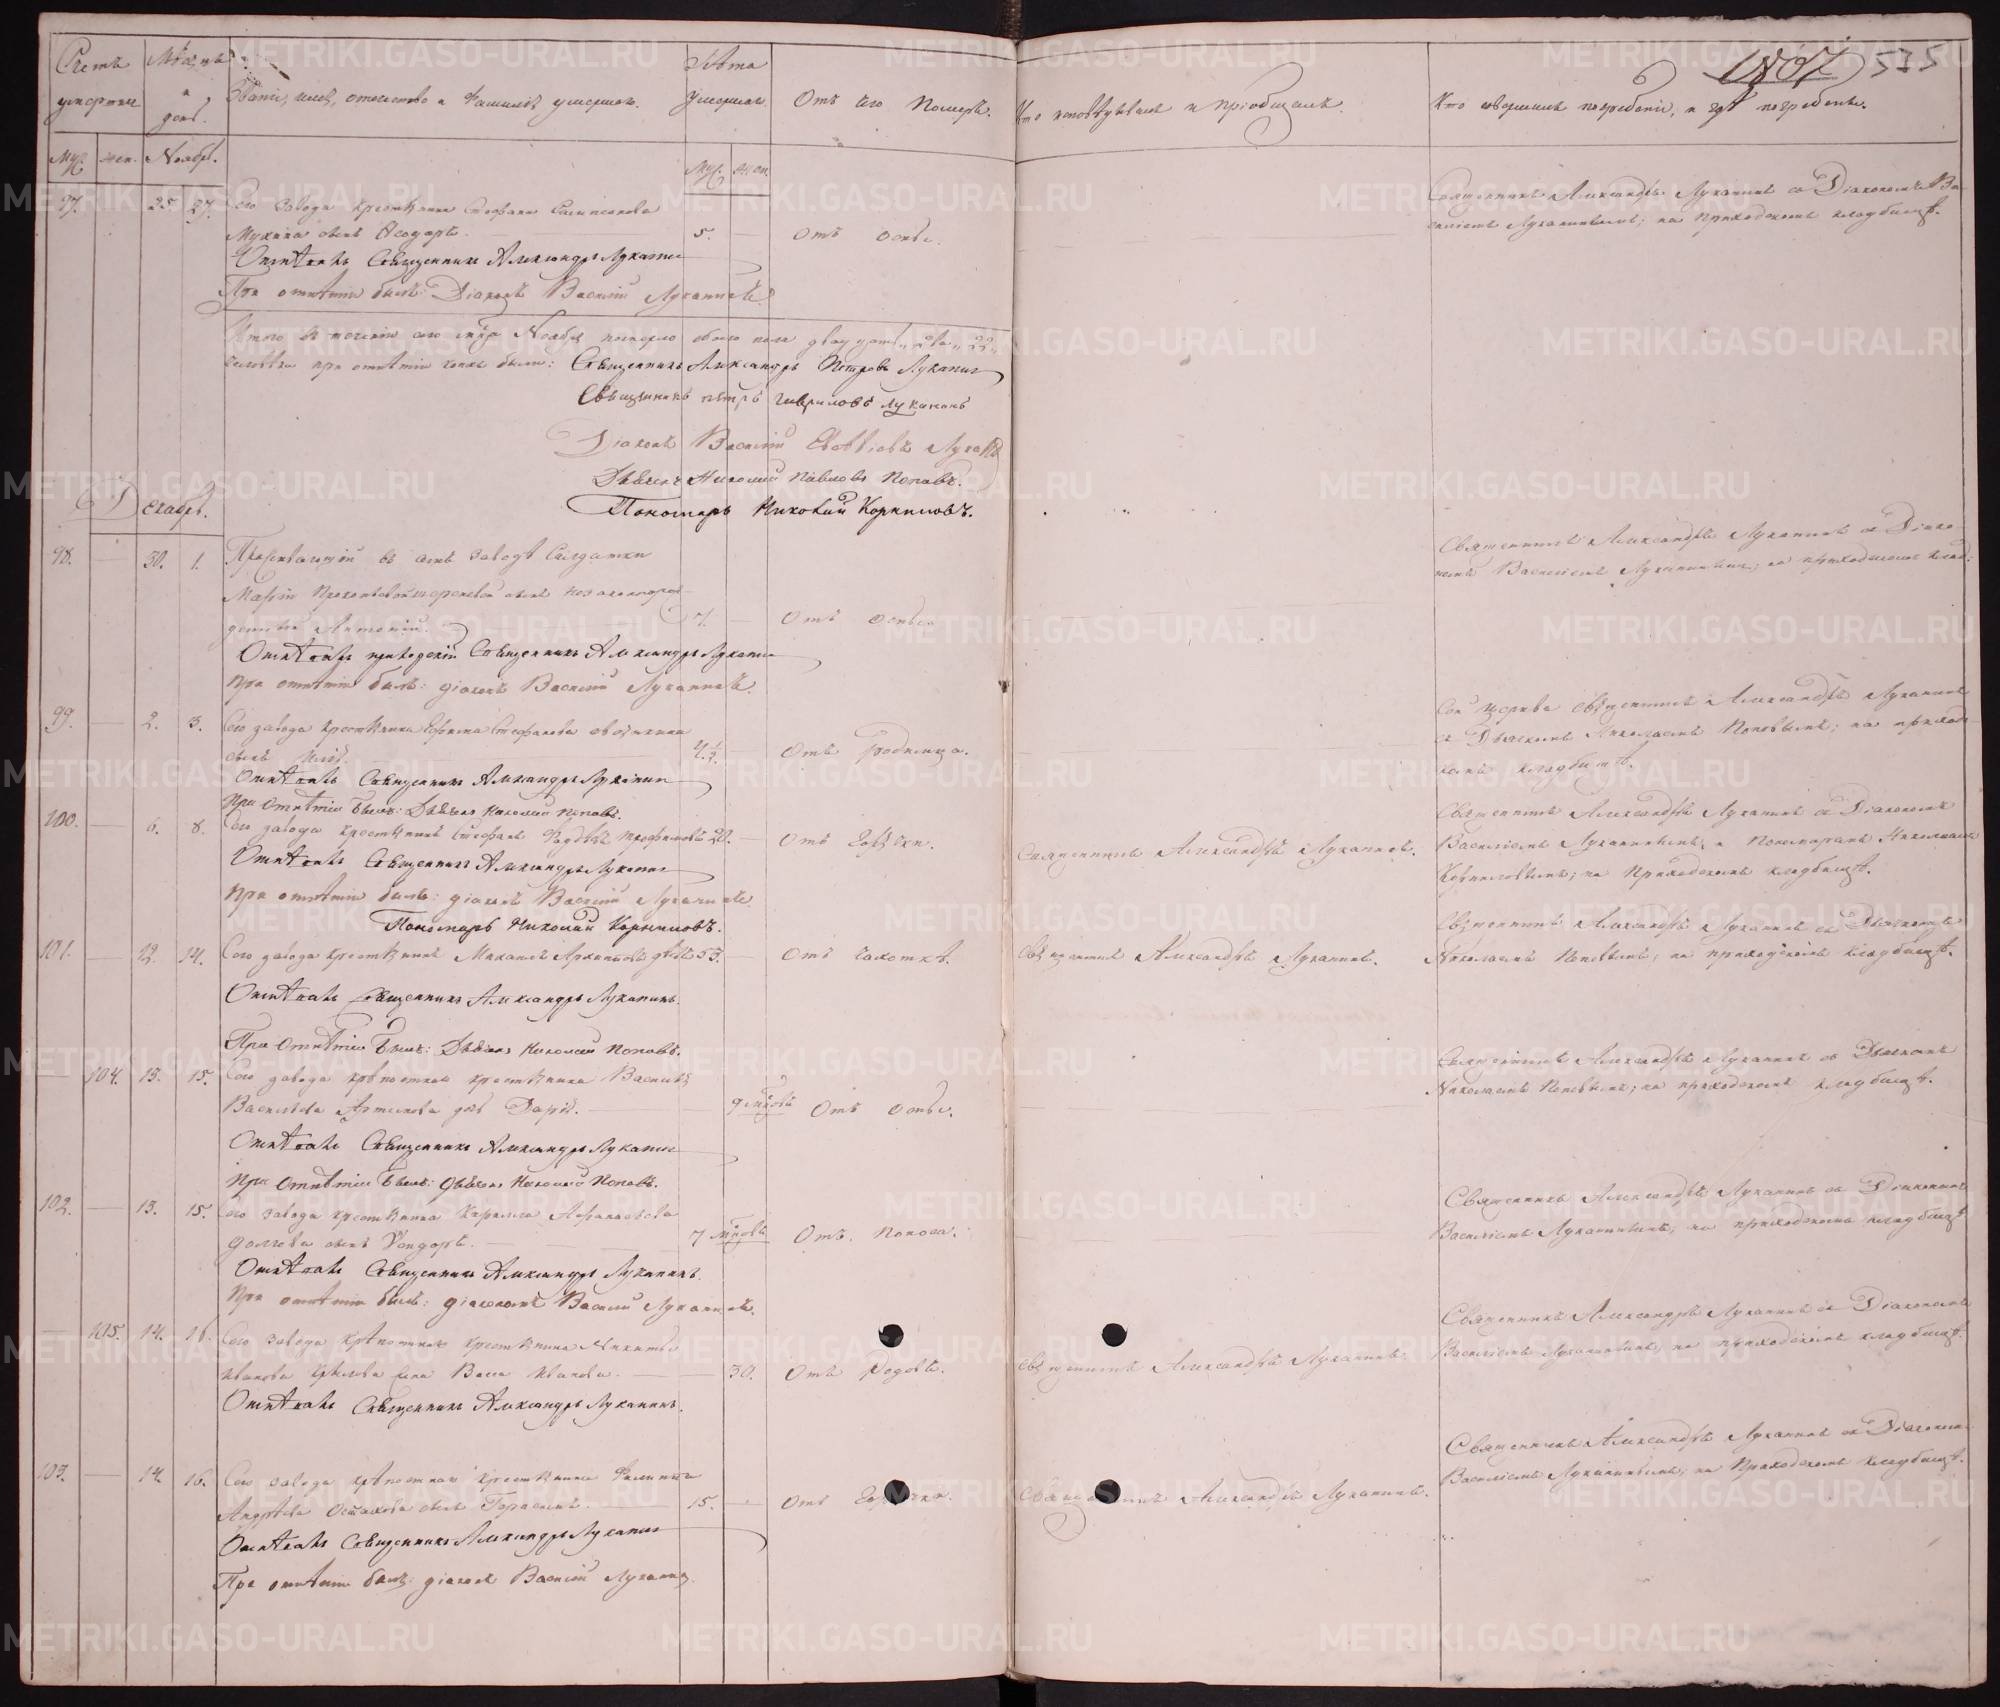 Счетъ умершихъ
Мѣсяцъ и день.
Званіе, имя, отчество и Фамилія умершихъ.
Лѣта умершихъ.
Отъ чего Померъ.
Кто исповѣдывалъ и пріобщалъ.
Кто совершалъ погребеніе, и гдѣ погребены.
1807 535
Муж. жен. Ноябрь.
Муж. жен.
97. 25 27. Сего завода крестьянина Стефана
Мухина сынъ Ѳеодоръ. 5. Отъ оспы.
Священникъ Александръ Луканинъ съ Діакономъ Ва-
силіемъ Луканинымъ; на приходскомъ кладбищѣ.
Отпѣвалъ Священникъ Александръ Луканинъ
При отпѣтіи былъ: Діаконъ Василій Луканинъ
Итого въ теченіи сего Ноября померло обоего пола двадцать два 22
человѣка при отпѣтіи коихъ были: Священникъ Александръ Петровъ Луканинъ
Священникъ Петръ Гавриловъ Луканинъ
Діаконъ Василій Лукан
Дьячекъ Николай Павловъ Поповъ.
Пономарь Николай Корниловъ.
Декабрь.
98. — 30. 1. Проживающей въ семъ заводѣ Солдатки
Маріи сынъ незаконнорож-
денный Антоній. 7. Отъ оспы
Священникъ Александръ Луканинъ съ Діако-
номъ Василіемъ Луканинымъ; на приходскомъ клад:
Отпѣвалъ приходскій Священникъ Александръ Луканин
При отпѣтіи былъ: діаконъ Василій Луканинъ.
99. — 2. 3. Сего завода крестьянина Ефрема Стефанова
сынъ 4½ — Отъ Родимца.
Сей церкви священникъ Александръ Луканинъ
съ Дьячкомъ Николаемъ Поповымъ; на приход-
скомъ кладбищѣ.
Отпѣвалъ Священникъ Александръ Луканин
При Отпѣтіи былъ: Дьячекъ Николай Поповъ.
100. — 6. 8. Сего завода крестьянинъ Стефанъ Трофимовъ 28. — Отъ Горячки.
Священникъ Александръ Луканинъ.
Священникъ Александръ Луканинъ съ Діакономъ
Василіемъ Луканинымъ, и Пономаремъ Николаемъ
Корниловымъ; на Приходскомъ кладбищѣ.
Отпѣвалъ Священникъ Александръ Луканин
При отпѣтіи былъ: діаконъ Василій Луканинъ
Пономарь Николай Корниловъ.
101. — 12. 14. Сего завода крестьянинъ Архиповъ 53. — Отъ чахотки. Священникъ Александръ Луканинъ.
Священникъ Александръ Луканинъ съ Дьячкомъ
Николаемъ Поповымъ; на приходскомъ кладбищѣ.
Отпѣвалъ Священникъ Александръ Луканинъ.
При Отпѣтіи былъ: Дьячекъ Николай Поповъ.
104. 13. 15. Сего завода крѣпостнаго крестьянина Василья
Васильева дочь Дарія. — 9 Отъ оспы.
Священникъ Александръ Луканинъ съ Дьячкомъ
Николаемъ Поповымъ; на приходскомъ кладбищѣ.
Отпѣвалъ Священникъ Александръ Луканин
При Отпѣтіи былъ: дьячекъ Николай Поповъ.
102. — 13. 15. Сего завода крестьянина Кирилла Афанасьева
сынъ Ѳеодоръ. 7 Отъ Поноса.
Священникъ Александръ Луканинъ съ Діакономъ
Василіемъ Луканинымъ, на приходскомъ кладбищѣ
Отпѣвалъ Священникъ Александръ Луканинъ.
При отпѣтіи былъ: Василій Луканинъ.
— 105. 14. 16. Сего завода крѣпостнаго крестьянина Никиты
Иванова жена Васса Иванова. — 30. Отъ Родовъ. Священникъ Александръ Луканинъ.
Священникъ Александръ Луканинъ съ Діакономъ
Василіемъ Луканинымъ; на приходскомъ кладбищѣ.
Отпѣвалъ Священникъ Александръ Луканинъ.
103. — 14. 16. Сего завода крѣпостнаго крестьянина Филиппа
Андреева сынъ Герасимъ. 15. — Отъ Горячки. Священникъ Александръ Луканинъ.
Священникъ Александръ Луканинъ съ Діакономъ
Василіемъ Луканинымъ; на Приходскомъ кладбищѣ.
Отпѣвалъ Священникъ Александръ Луканин
При отпѣтіи былъ: діаконъ Василій Луканин
METRIKI.GASO-URAL.RU